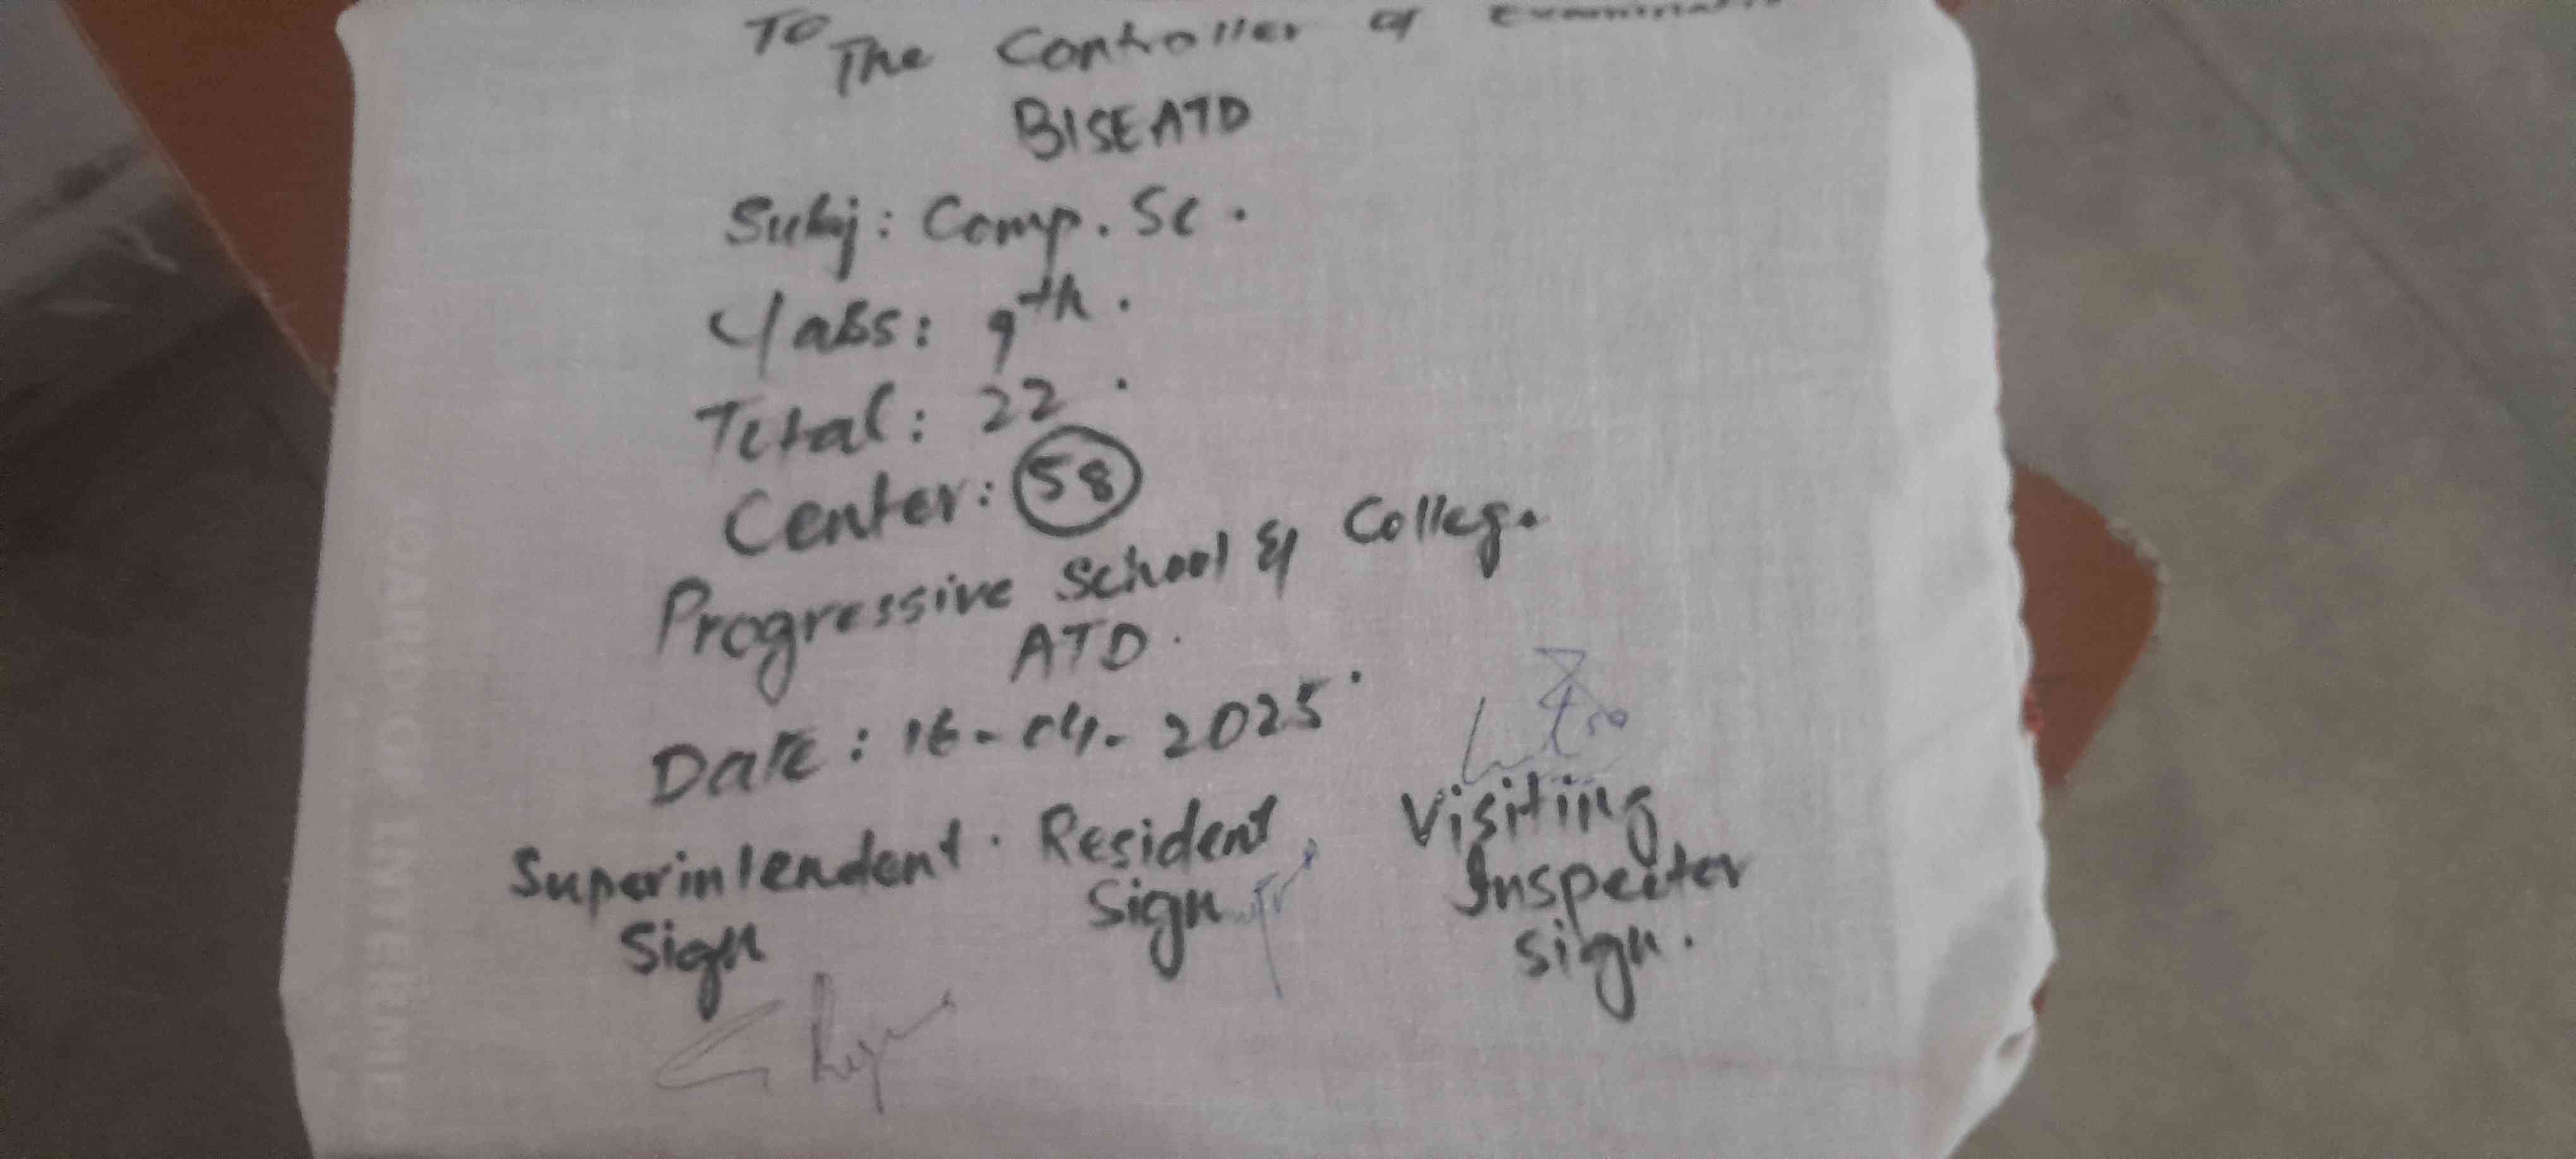 To
The Controller of Examinatio
BISE ATD
Subj: Comp. Sc.
Class: 9th.
Total: 22.
Center: 58
Progressive School & College
ATD.
Date: 16-04-2025.
Superintendent Sign
Resident Sign
Visiting Inspector Sign.
OARD OF INTERMED